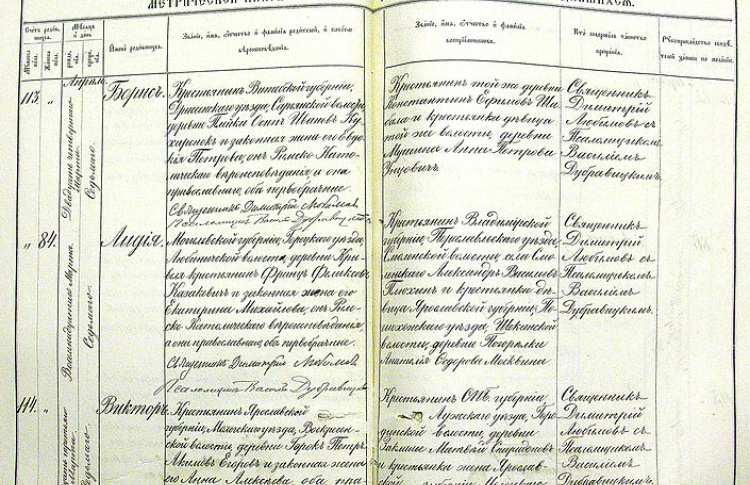 МЕТРИЧЕСКОЙ
Счетъ родив-
шихся.
Мѣсяцъ
и день.
Мужеска
пола.
Женска
пола.
рожд.
крещ.
Имена родившихся.
Званіе, имя, отчество и фамилія родителей, и какого
вѣроисповѣданія.
Званіе, имя, отчество и фамилія
воспріемниковъ.
Кто совершалъ таинство
крещенія.
Рукоприкладство
записи по желанію.
Апрѣль
113.
"
Двадцать четвертаго
Марта
Седьмого.
Борисъ.
Крестьянинъ Витебской губерніи,
уѣзда, волости,
деревни Осипъ Ивановъ
и законная жена его Евдо-
кія Петрова, онъ Римско-Като-
лическаго вѣроисповѣданія, а она
православнаго, оба первобрачные.
Священникъ Димитрій Любимовъ
Псаломщикъ Василій Дубравицкій
Крестьянинъ той же деревни
Константинъ Ефимовъ
и крестьянка дѣвица
той же волости, деревни
Мунина Анна Петрова
Священникъ
Димитрій
Любимовъ съ
Псаломщикомъ
Василіемъ
Дубравицкимъ.
"
84.
Восемнадцатаго Марта.
Седьмого.
Лидія.
Могилевской губерніи, Горецкаго уѣзда,
волости, деревни
крестьянинъ Францъ Феликсовъ
Казакевичъ и законная жена его
Екатерина Михайлова, онъ Рим-
ско-Католическаго вѣроисповѣданія,
а она православнаго, оба первобрачные.
Священникъ Димитрій Любимовъ
Псаломщикъ Василій Дубравицкій
Крестьянинъ Владимірской
губерніи, Переславскаго уѣзда,
Смоленской волости, села Смо-
ленскаго Александръ Васильевъ
и крестьянка дѣ-
вица Ярославской губерніи, По-
шехонскаго уѣзда,
волости, деревни
Анатолія Ѳедорова Москвина.
Священникъ
Димитрій
Любимовъ съ
Псаломщикомъ
Василіемъ
Дубравицкимъ.
114.
"
Марта
Седьмого.
Викторъ.
Крестьянинъ Ярославской
губерніи, Моложскаго уѣзда, Воскресен-
ской волости, деревни Петръ
Акимовъ Егоровъ и законная жена
его Анна Алексѣева, оба пра-
Крестьянинъ СПБ. губерніи
Лужскаго уѣзда, Горо-
волости, деревни
Матвѣй
и крестьянка жена Ярослав-
ской губерніи
Священникъ
Димитрій
Любимовъ съ
Псаломщикомъ
Василіемъ
Дубравицкимъ.